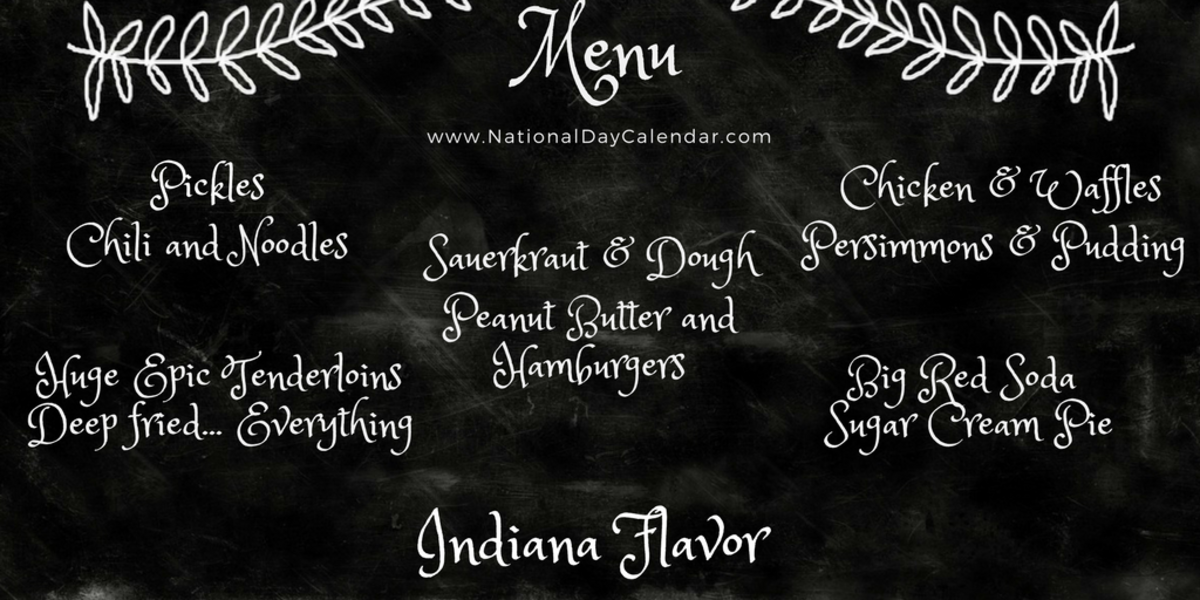 Menu
www.NationalDayCalendar.com
Pickles
Chili and Noodles
Huge Epic Tenderloins
Deep fried... Everything
Sauerkraut & Dough
Peanut Butter and
Hamburgers
Chicken & Waffles
Persimmons & Pudding
Big Red Soda
Sugar Cream Pie
Indiana Flavor